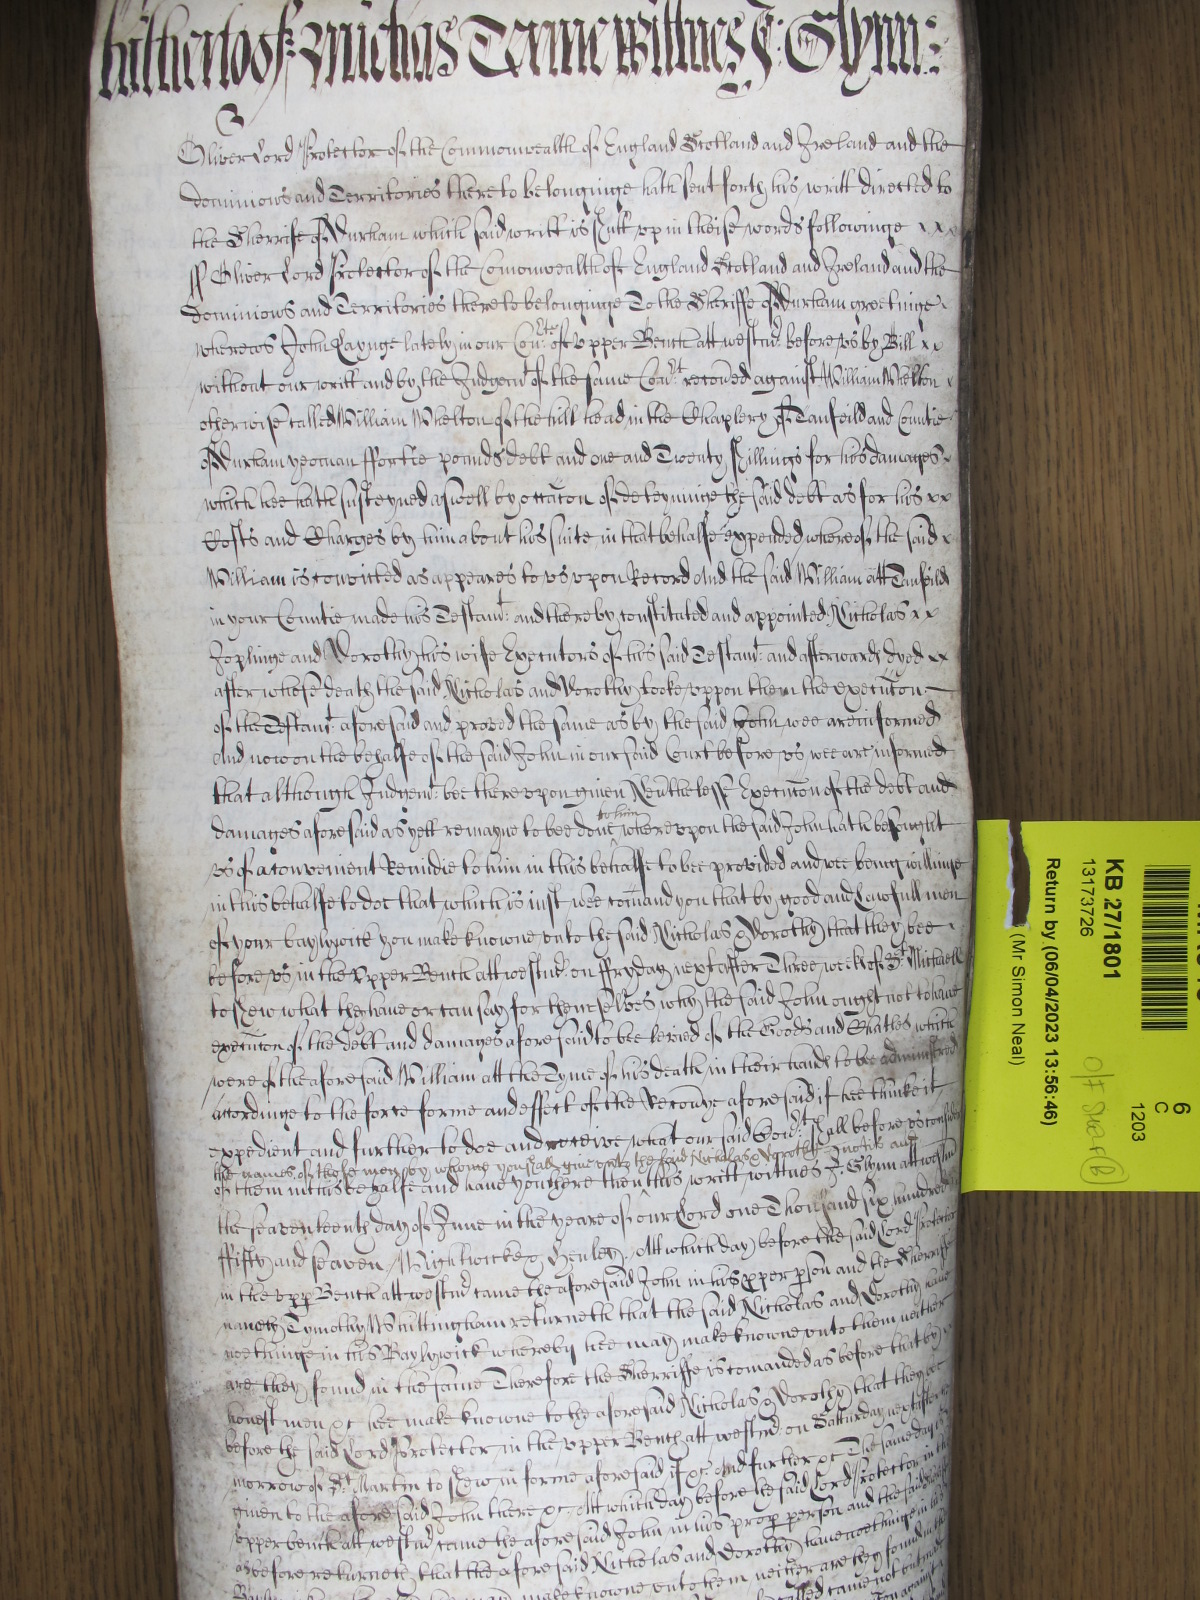 hitherto of Michas Terme Wittnes J: Glynn:
Oliver Lord Protector of the Commonwealth of England Scotland and Ireland and the
dominions and Territories thereto belonginge hath sent forth his writt directed to
the Sherrife of Durham which said writt is shutt up in theise words followinge x x
ss Oliver Lord Protector of the Comonwealth of England Scotland and Ireland and the
dominions and Territories thereto belonginge To the Sheriffe of Durham greetinge
whereas John Laynge lately in our Court of upper Bench att westmr before us by Bill xx
without our writt and by the Judgemt of the same Court recoved against William Whelton
otherwise called William Whelton of the hill head in the Chaplery of Tanfeild and Countie
of Durham yeoman ffortie pounds debt and one and Twenty shillings for his damages
which hee hath susteyned aswell by occacon of deteyninge the said debt as for his xx
Costs and Charges by him about his suite in that behalfe expended whereof the said x
William is convicted as appeares to us upon Record And the said William att Tanfeild
in your Countie made his Testamt: and thereby constituted and appointed Nicholas xx
Joplinge and Dorothy his wife Executors of his said Testamt: and afterwards dyed xx
after whose death the said Nicholas and Dorothy tooke uppon them the execucon
of the Testamt aforesaid and proved the same as by the said John wee are informed
And now on the behalfe of the said John in our said Court before us wee are informed
that although Judgemt: bee thereupon given Neutheless Execucon of the debt and
damages aforesaid as yett remayne to bee done to him whereupon the said John hath besought
us of a convenient Remidie to him in this behalfe to bee provided and wee being willinge
in this behalfe to doe that which is just wee comand you that by good and Lawfull men
of your baylywick you make knowne unto the said Nicholas & Dorothy that they bee
before us in the Upper Bench att westmr on ffryday next after Three weeks of St Michaell
to shew what they have or can say for themselves why the said John ought not to have
execucon of the debt and damages aforesaid to bee levied of the Goods and Chatles which
were of the aforesaid William att the Tyme of his death in their hands to bee administred
accordinge to the force forme and effect of the Recovye aforesaid if hee thinke it
expedient and further to doe and receive what our said Court shall before us consider
the names of those men by whome you shall give unto the said Nicholas & Dorothy notice and
of them in this behalfe and have you there then this writt wittnes J: Glynn att westmr
the seaventeenth day of June in the yeare of our Lord one Thousand six hundred
ffifty and seaven / Wightwicke & Henley. Att which day before the said Lord Protector
in the uppr Bench att westmr came the aforesaid John in his pper pson and the Sherriffe
namely Tymothy Whittingham returneth that the said Nicholas and Dorothy have
nothinge in his Baylywick whereby hee may make knowne unto them neither
are they found in the same Therefore the Sherriffe is comanded as before that by
honest men &c hee make knowne to the aforesaid Nicholas & Dorothy that they bee
before the said Lord Protector in the upper Bench att westmr on Satturday next after the
morrow of St Martin to shew in forme aforesaid if &c And further &c The same day is
given to the aforesaid John there &c Att which day before the said Lord Protector in the
upper bench att westmr came the aforesaid John in his propp person and the said
as before returneth that the aforesaid Nicholas and Dorothy have nothinge in his
make knowne unto them neither are they found in the
called came not
KB 27/1801
13173726
Return by (06/04/2023 13:56:46)
(Mr Simon Neal)
6
C
1203